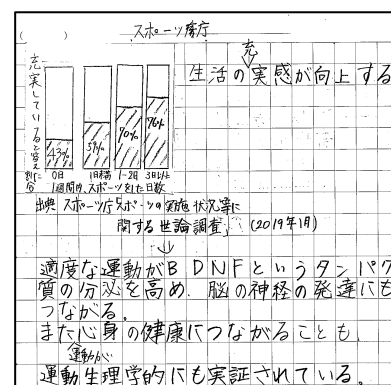 スポーツ庁
充
生活の実感が向上する
充実していると答え
43%
59%
70%
76%
0日
1日未満
1-2日
3日以上
1週間内、スポーツをした日数
出典 スポーツ庁「スポーツの実施状況等に
関する世論調査」 (2019年1月)
適度な運動がBDNFというタンパク
質の分泌を高め、脳の神経の発達にも
つながる。
また心身の健康につながることも、
運動が心
運動生理学的にも実証されている。